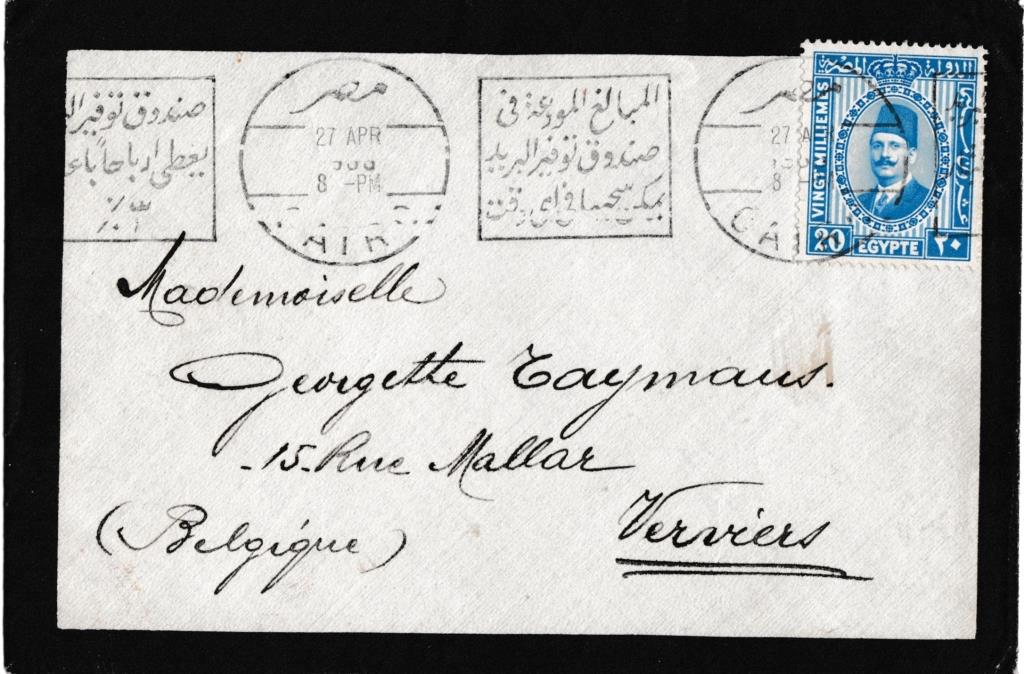 صندوق توفير
يعطي ارباحا
مصر
27 APR
8 -PM
CAIRO
المبالغ المودعة في
صندوق توفير البريد
يمكن سحبها في اي وقت
مصر
27
8
CAI
المصرية
VINGT MILLIEMES
20 EGYPTE ٢٠
Mademoiselle
Georgette Taymans.
-15-Rue Mallar
Verviers
(Belgique)